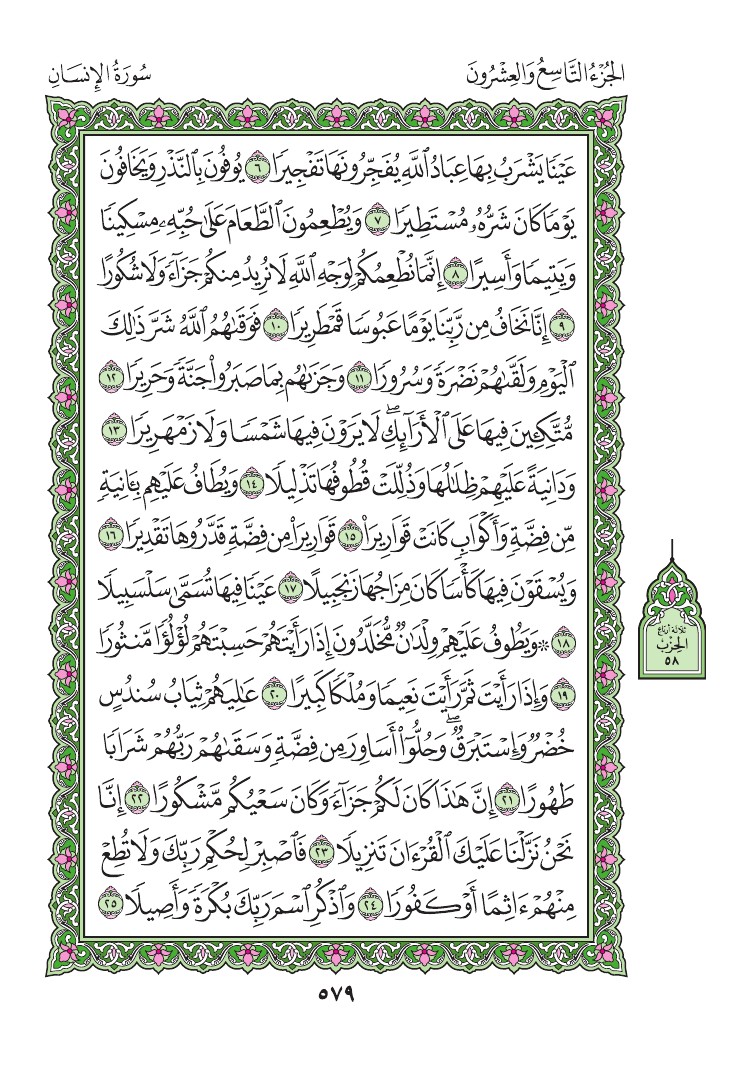 الجُزْءُ التَّاسِعُ وَالعِشْرُونَ
سُورَةُ الإِنسَانِ
عَيْنٗا يَشْرَبُ بِهَا عِبَادُ ٱللَّهِ يُفَجِّرُونَهَا تَفْجِيرٗا ٦ يُوفُونَ بِٱلنَّذْرِ وَيَخَافُونَ
يَوْمٗا كَانَ شَرُّهُۥ مُسْتَطِيرٗا ٧ وَيُطْعِمُونَ ٱلطَّعَامَ عَلَىٰ حُبِّهِۦ مِسْكِينٗا
وَيَتِيمٗا وَأَسِيرًا ٨ إِنَّمَا نُطْعِمُكُمْ لِوَجْهِ ٱللَّهِ لَا نُرِيدُ مِنكُمْ جَزَآءٗ وَلَا شُكُورًا
٩ إِنَّا نَخَافُ مِن رَّبِّنَا يَوْمًا عَبُوسٗا قَمْطَرِيرٗا ١٠ فَوَقَىٰهُمُ ٱللَّهُ شَرَّ ذَٰلِكَ
ٱلْيَوْمِ وَلَقَّىٰهُمْ نَضْرَةٗ وَسُرُورٗا ١١ وَجَزَىٰهُم بِمَا صَبَرُوا۟ جَنَّةٗ وَحَرِيرٗا ١٢
مُّتَّكِـِٔينَ فِيهَا عَلَى ٱلْأَرَآئِكِۖ لَا يَرَوْنَ فِيهَا شَمْسٗا وَلَا زَمْهَرِيرٗا ١٣
وَدَانِيَةً عَلَيْهِمْ ظِلَٰلُهَا وَذُلِّلَتْ قُطُوفُهَا تَذْلِيلٗا ١٤ وَيُطَافُ عَلَيْهِم بِـَٔانِيَةٖ
مِّن فِضَّةٖ وَأَكْوَابٖ كَانَتْ قَوَارِيرَا۠ ١٥ قَوَارِيرَا۟ مِن فِضَّةٖ قَدَّرُوهَا تَقْدِيرٗا ١٦
وَيُسْقَوْنَ فِيهَا كَأْسٗا كَانَ مِزَاجُهَا زَنجَبِيلًا ١٧ عَيْنٗا فِيهَا تُسَمَّىٰ سَلْسَبِيلٗا
١٨ ۞وَيَطُوفُ عَلَيْهِمْ وِلْدَٰنٞ مُّخَلَّدُونَ إِذَا رَأَيْتَهُمْ حَسِبْتَهُمْ لُؤْلُؤٗا مَّنثُورٗا
١٩ وَإِذَا رَأَيْتَ ثَمَّ رَأَيْتَ نَعِيمٗا وَمُلْكٗا كَبِيرًا ٢٠ عَٰلِيَهُمْ ثِيَابُ سُندُسٍ
خُضْرٞ وَإِسْتَبْرَقٞۖ وَحُلُّوٓا۟ أَسَاوِرَ مِن فِضَّةٖ وَسَقَىٰهُمْ رَبُّهُمْ شَرَابٗا
طَهُورًا ٢١ إِنَّ هَٰذَا كَانَ لَكُمْ جَزَآءٗ وَكَانَ سَعْيُكُم مَّشْكُورًا ٢٢ إِنَّا
نَحْنُ نَزَّلْنَا عَلَيْكَ ٱلْقُرْءَانَ تَنزِيلٗا ٢٣ فَٱصْبِرْ لِحُكْمِ رَبِّكَ وَلَا تُطِعْ
مِنْهُمْ ءَاثِمًا أَوْ كَفُورٗا ٢٤ وَٱذْكُرِ ٱسْمَ رَبِّكَ بُكْرَةٗ وَأَصِيلٗا ٢٥
ثلاثة أرباع
الحِزْب
٥٨
٥٧٩